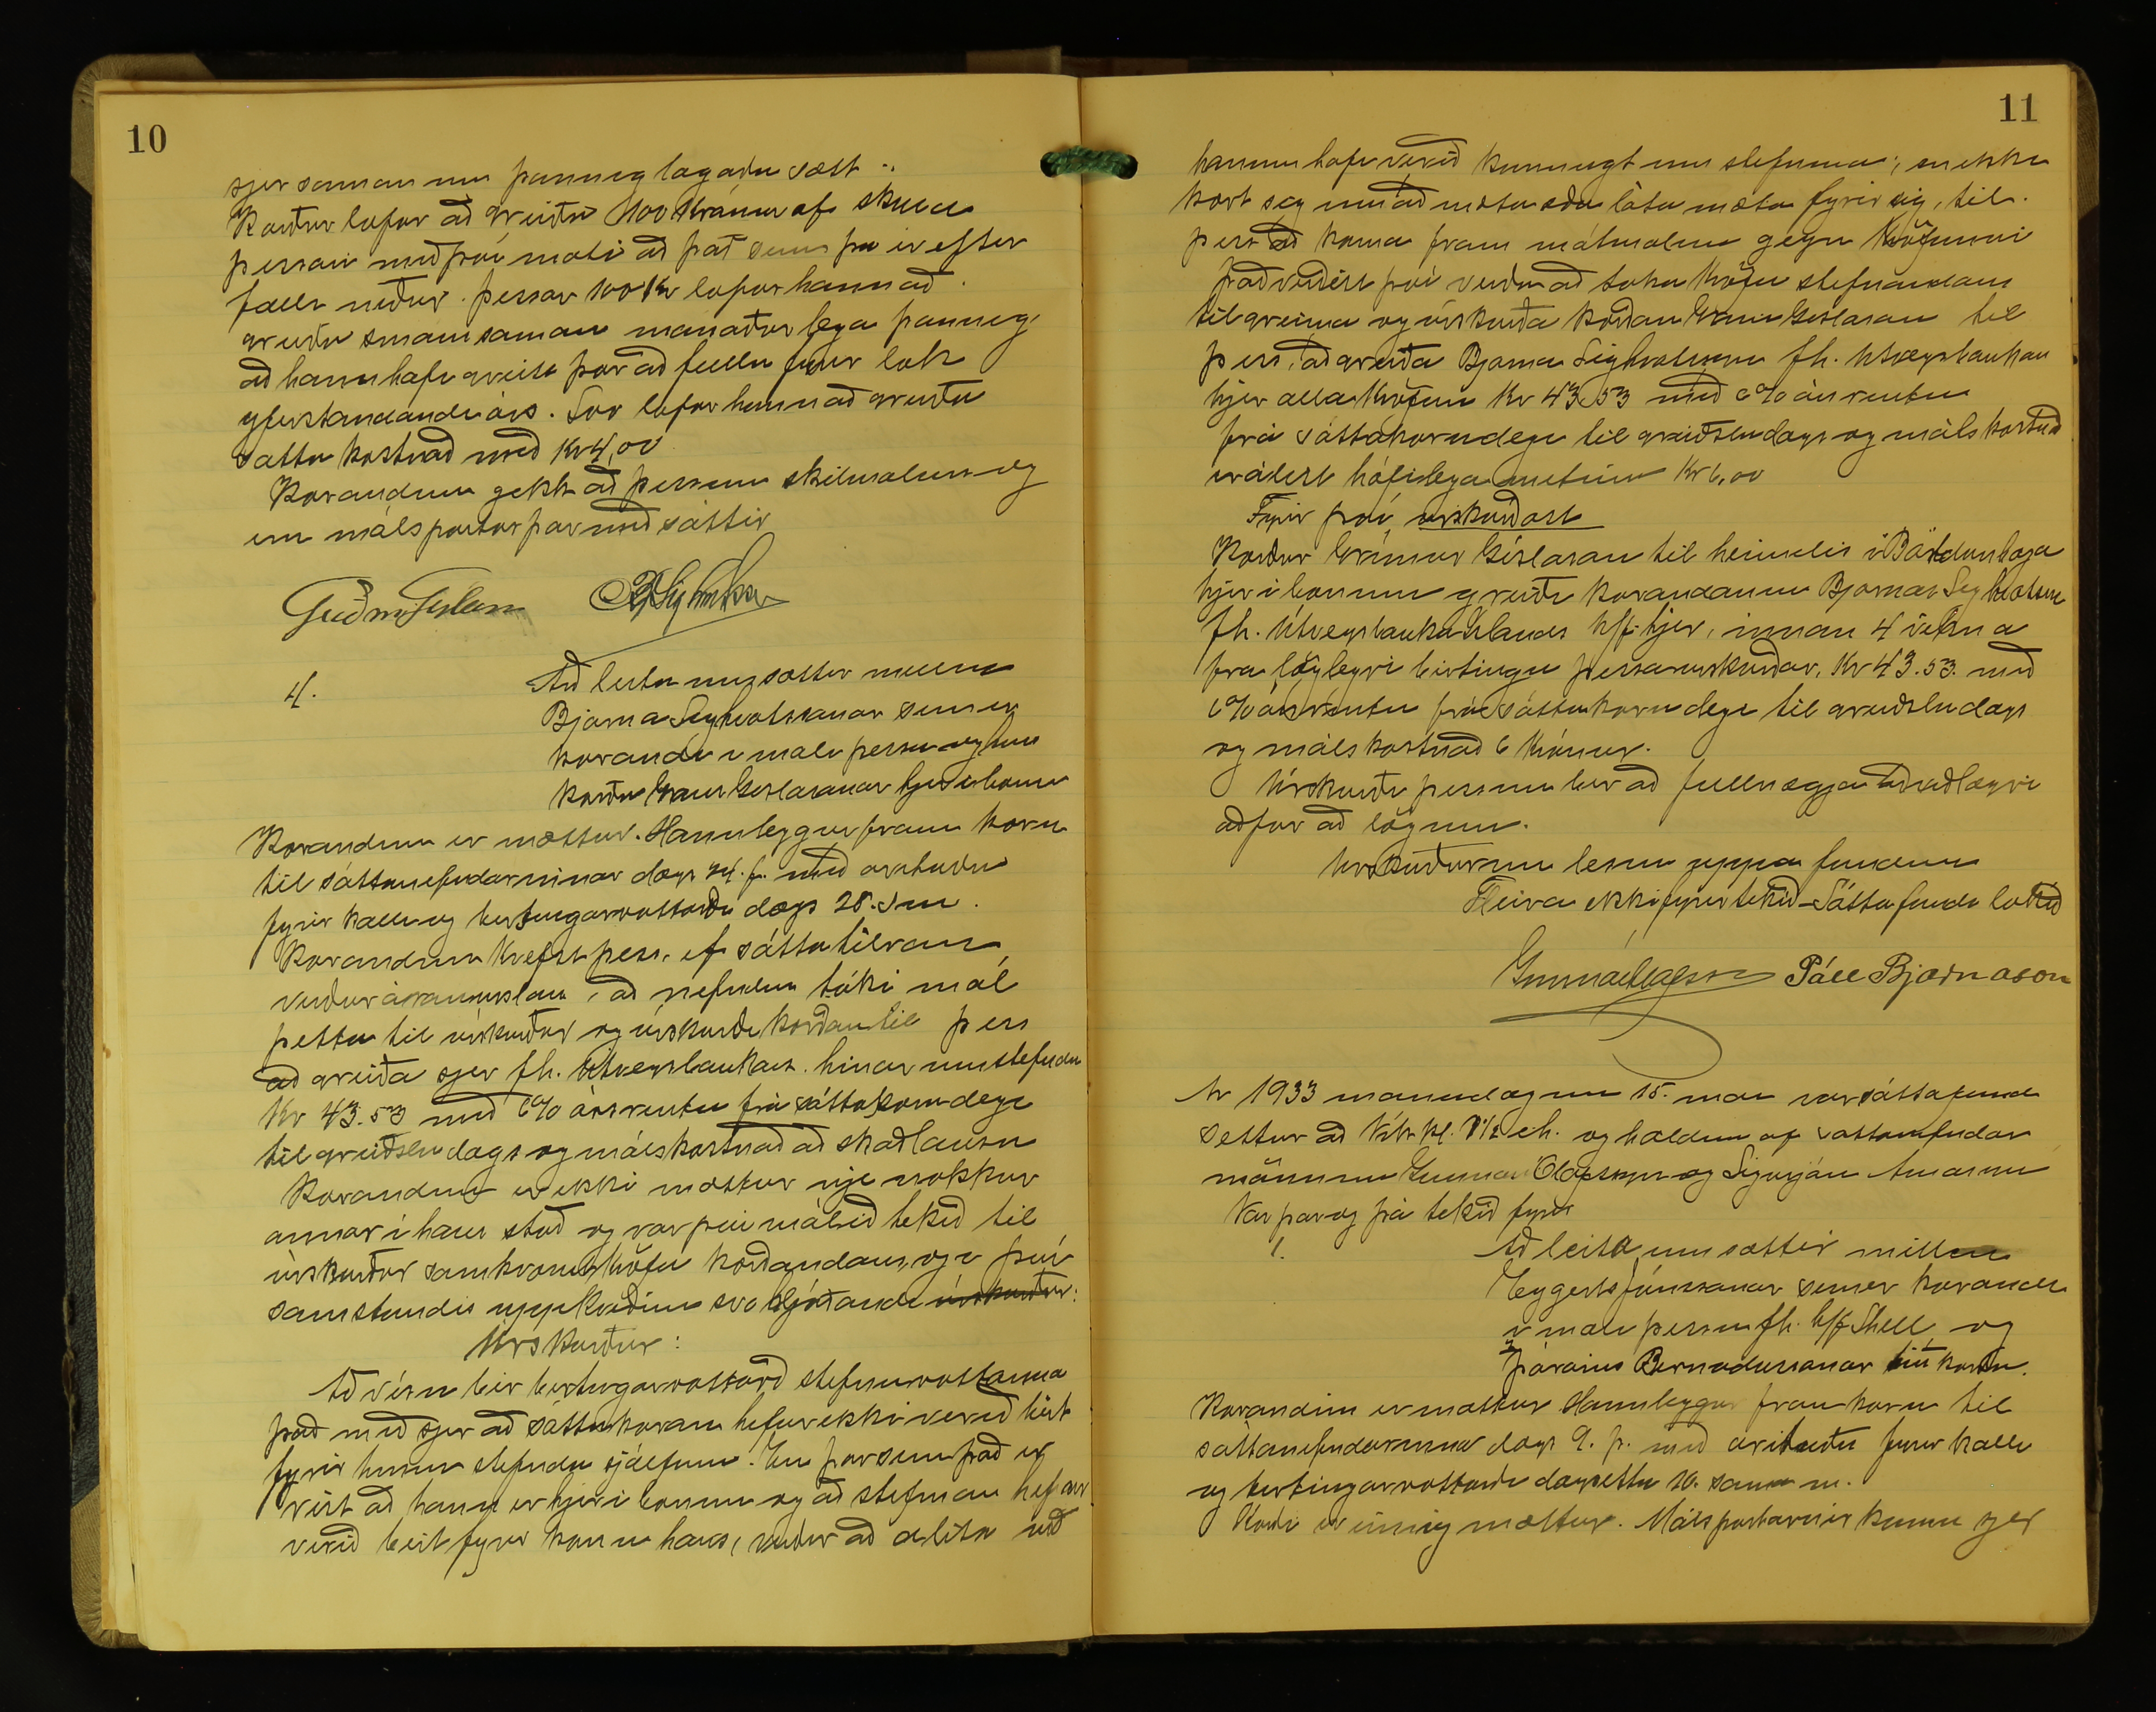 10
sjer saman um þannig lagaða sætt:
Kærður lofar að greiða 100 krónur af skuld
þessari með því móti að það sem þá er eftir
falli niður. Þessar 100 kr lofar hann að
greiða smám saman mánaðarlega þannig
að hann hafi greitt þær að fullu fyrir lok
yfirstandandi árs. Svo lofar hann að greiða
sátta kostnað með Kr 4,00
Kærandinn gekk að þessum skilmálum og
eru málspartar þar með sáttir
Guðm Gíslason
4.
Að leita um sættir milli
Bjarna Sighvatssonar sem er
kærandi í máli þessu og hins
kærða Gríms Gíslasonar hjer í bænum
Kærandinn er mættur. Hann leggur fram kæru
til sáttanefndarinnar dags 24. f. með áritaðri
fyrir kalli og birtingarvottorði dags 28. s m.
Kærandinn krefst þess, ef sáttatilraun
verður árangurslaus, að nefndin taki mál
þetta til úrskurðar og úrskurði kærðan til þess
að greiða sjer fh. Útvegsbankans hinar umstefndu
Kr 43.53 með 6% ársvöxtum frá sáttakærudegi
til greiðsludags og málskostnað að skaðlausu
Kærandinn er ekki mættur nje nokkur
annar í hans stað og var því málið tekið til
úrskurðar samkvæmt kröfu kærandans, og í því
samstundis uppkveðinn svo hljóðandi úrskurður:
Úrskurður:
Að vísu ber birtingarvottorð stefnuvottanna
það með sjer að sáttakæran hefur ekki verið birt
fyrir hinum stefnda sjálfum. En þar sem það er
víst að hann er hjer í bænum og að stefnan hefur
verið birt fyrir konu hans, verður að álíta að
11
hannn hafi verið kunnugt um stefnuna, en ekki
kært sig um að mæta eða láta mæta fyrir sig, til
þess að koma fram mótmælum gegn kröfunni
Það virðist því verða að taka kröfu stefnandans
til greina og úrskurða kærðan Grím Gíslason til
þess, að greiða Bjarna Sighvatssyni fh. Útvegsbankans
hjer alla kröfuna Kr 43,53 með 6% ársvöxtum
frá sáttakærudegi til greiðsludags og málskostnað
er álíst hæfilega metinn Kr 6,00
Fyrir því úrskurðast
Kærður Grímur Gíslason til heimilis í
hjer í bænum greiði kærandanum Bjarna Sighvatssyni
fh. Útvegsbanka Íslands h/f. hjer, innan 4 vikna
frá löglegri birtingu þessa úrskurðar, Kr 43.53. með
6% ársvöxtum frá sáttakærudegi til greiðsludags
og málskostnað 6 krónur.
Úrskurði þessum ber að fullnægja að viðlagðri
aðför að lögum.
Úrskurðurinn lesinn upp á fundinum
Fleira ekki fyrirtekið – Sáttafundi lokið
Gunnar Ólafsson Páll Bjarnason
Ár 1933 mánudaginn 15. maí var sáttafundur
settur að Vík kl. 1½ eh. og haldinn af sáttanefndar
mönnum Gunnari Ólafssyni og Sigurjóni Árnasyni
Var þar og þá tekið fyrir
1.
Að leita um sættir milli
Eygerts Jónssonar sem er kærandi
í máli þessu fh. h/f Shell og
Þórarins Bernodussonar hins kærða.
Kærandinn er mættur Hann leggur fram kæru til
sáttanefndarinnar dags 9. þ. með áritaðri fyrir kalli
og birtingarvottorði dagsettu 10. sama m.
Kærði er einnig mættur. Málspartarnir komu sjer